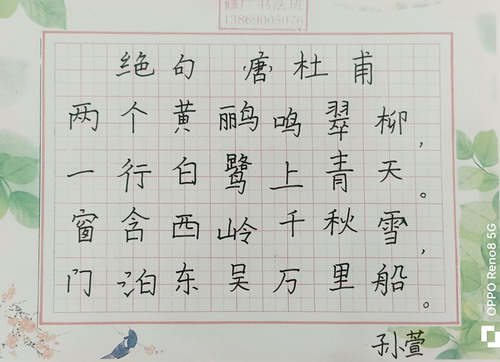 书法班
13869005076
绝句 唐 杜甫
两个黄鹂鸣翠柳，
一行白鹭上青天。
窗含西岭千秋雪，
门泊东吴万里船。
孙萱
OPPO Reno8 5G